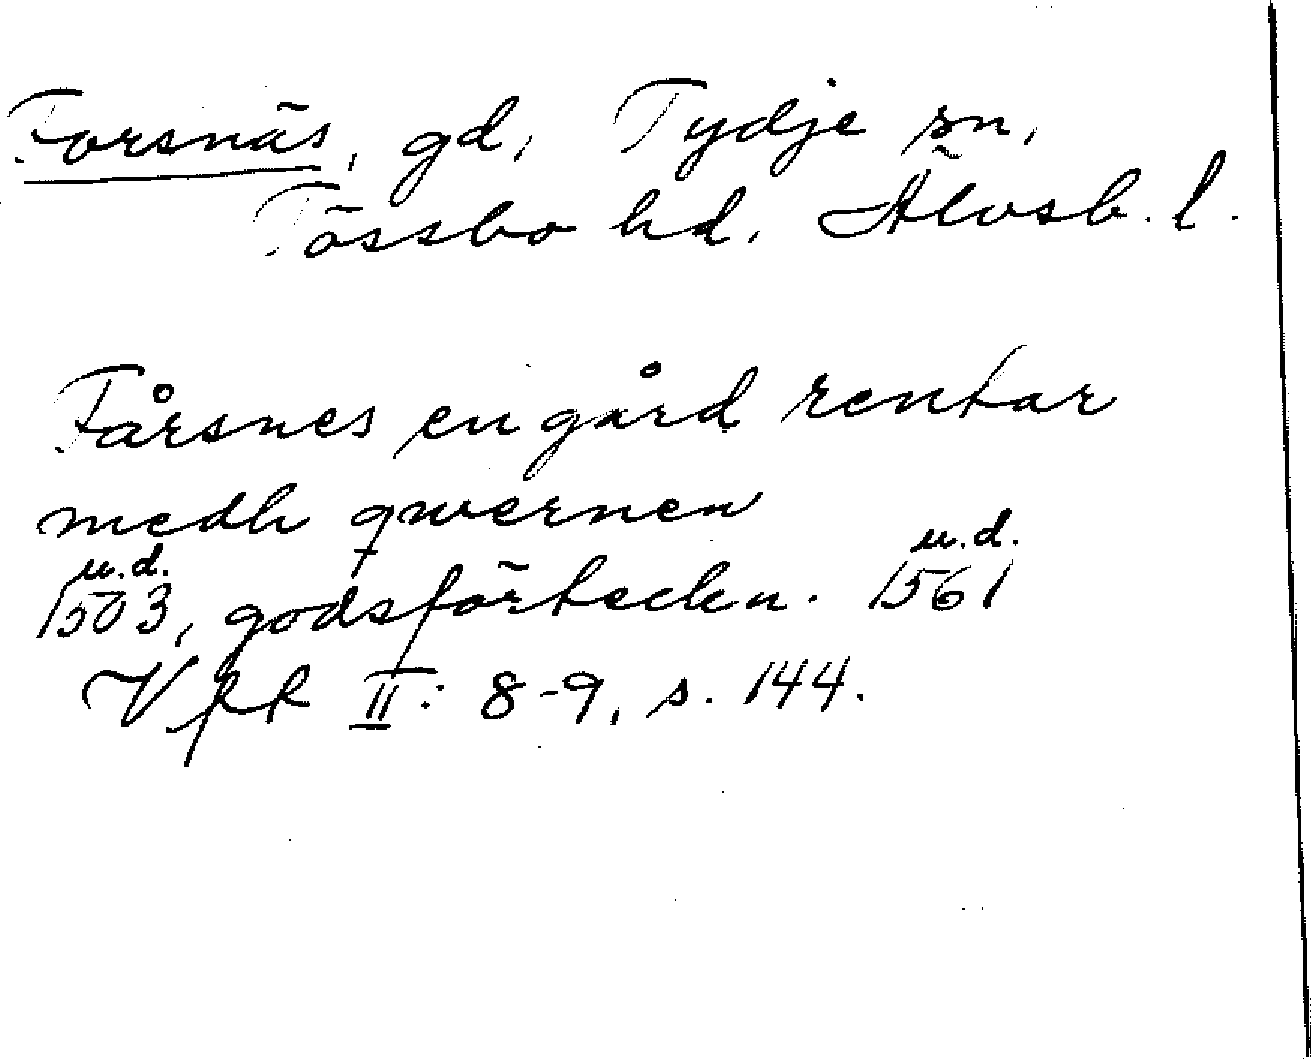 Forsnäs, gd, Tydje sn,
Tössbo hd, Älvsb. l.
Fårsnes en gård rentar
medh qwernen
u.d. u.d.
1503, godsförteckn. 1561
VFR II: 8-9, s. 144.